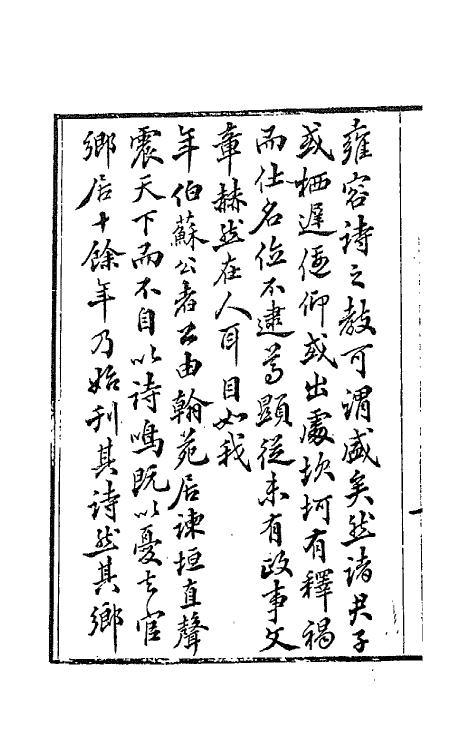 雍容詩之教可謂盛矣然諸君子
或栖遲偃仰或出處坎坷有釋褐
而仕名位不逮蓍顯從未有政事文
章赫然在人耳目如我
年伯蘇公者公由翰苑居諫垣直聲
震天下而不自以詩鳴既以憂去官
鄉居十餘年乃始刊其詩然其鄉